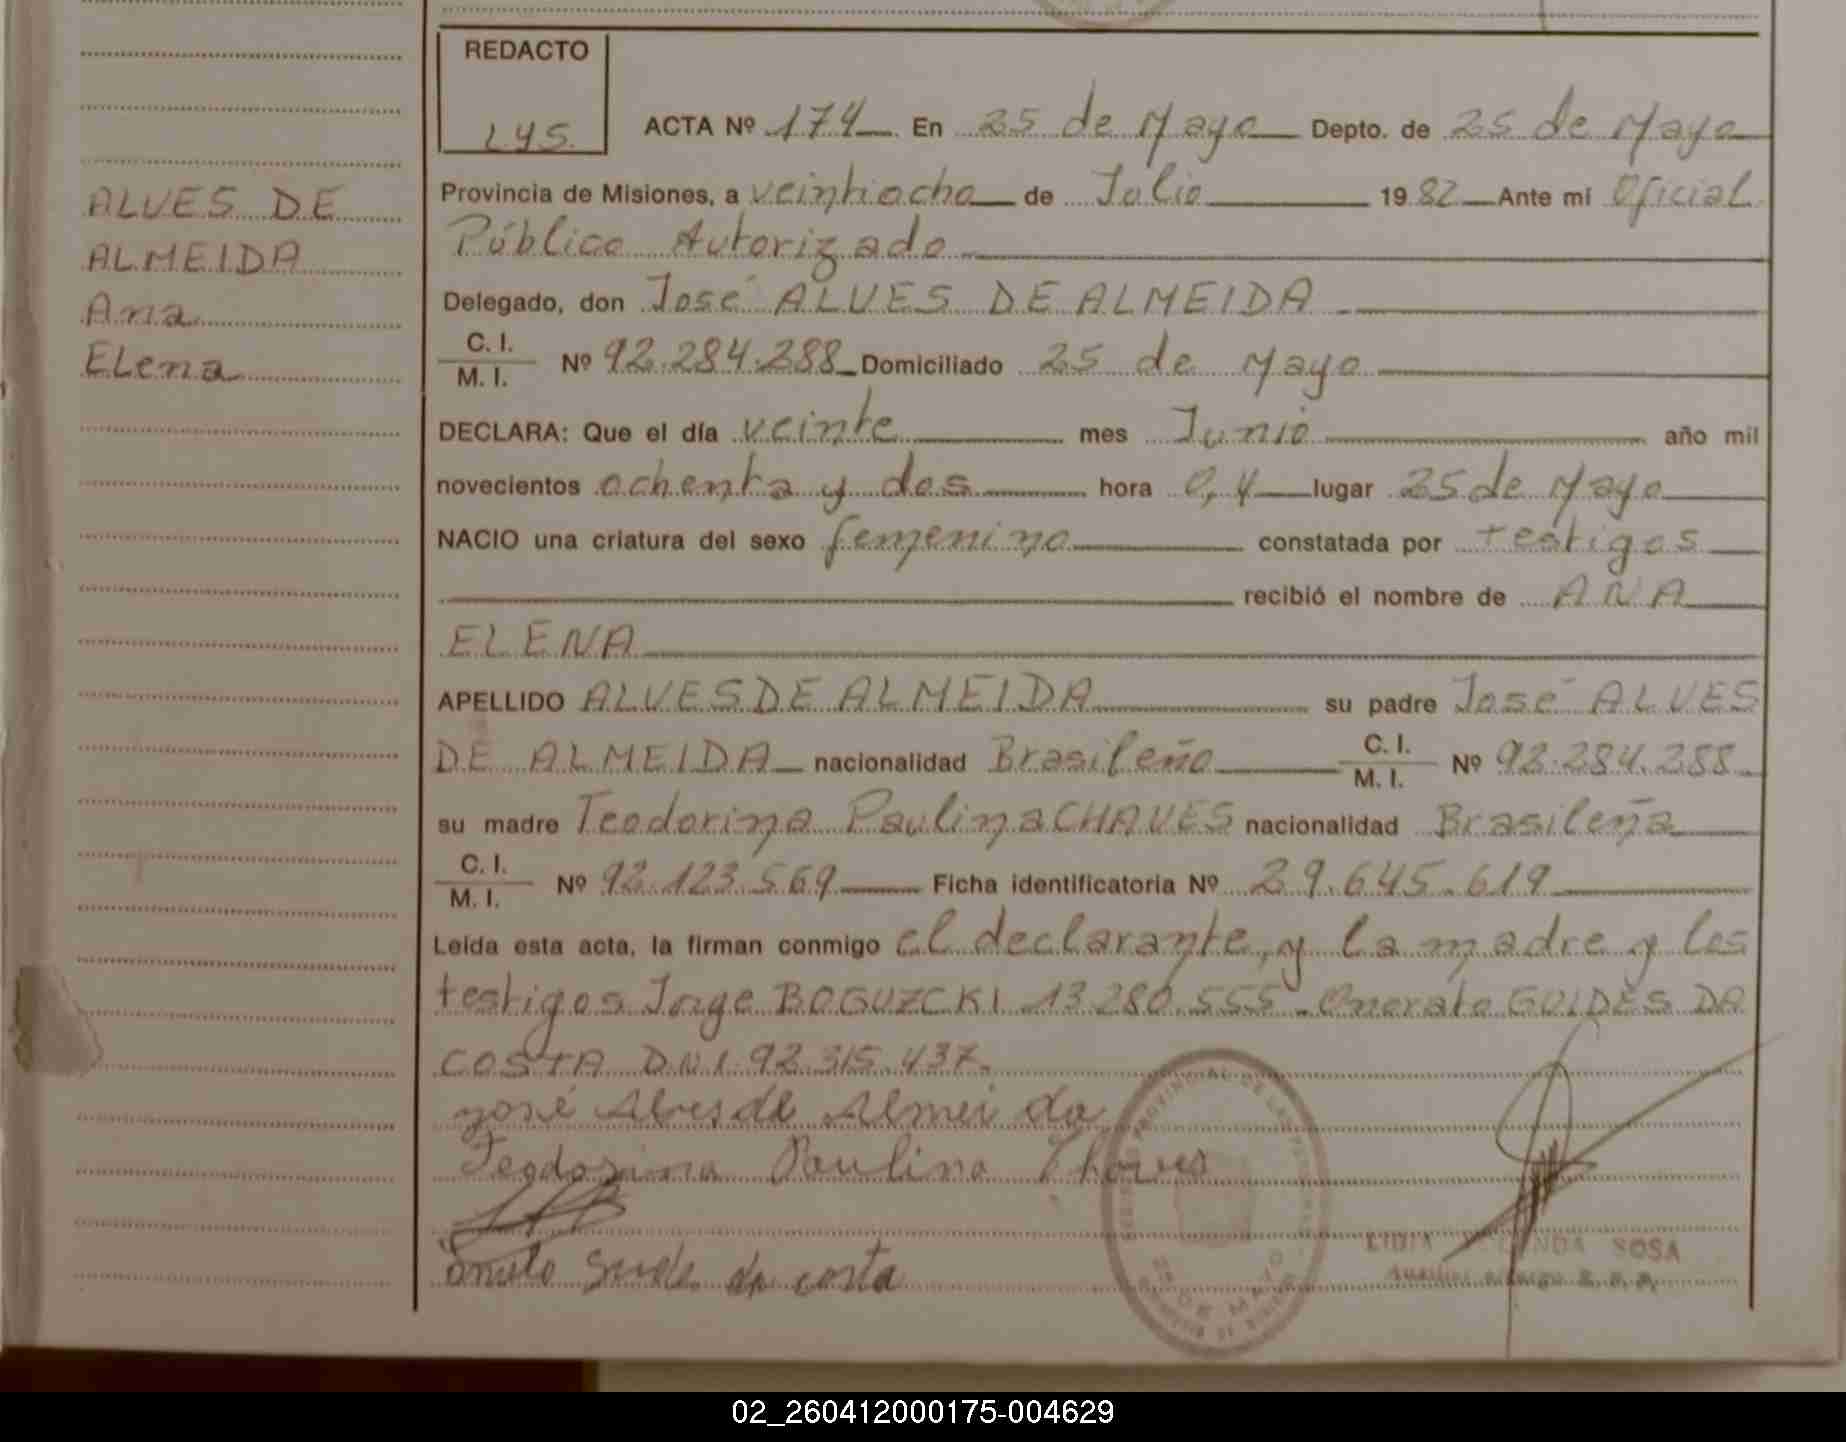 REDACTO
LYS.
ACTA Nº 174 En 25 de Mayo Depto. de 25 de Mayo
Provincia de Misiones, a veintiocho de Julio 1982 Ante mi Oficial
Público Autorizado
Delegado, don José ALVES DE ALMEIDA
C. I.
M. I. Nº 92.284.288 Domiciliado 25 de Mayo
DECLARA: Que el día veinte mes Junio año mil
novecientos ochenta y dos hora 0,4 lugar 25 de Mayo
NACIO una criatura del sexo femenino constatada por testigos
recibió el nombre de ANA
ELENA
APELLIDO ALVES DE ALMEIDA su padre José ALVES
DE ALMEIDA nacionalidad Brasileño C. I. M. I. Nº 92.284.288
su madre Teodorina Paulina CHAVES nacionalidad Brasileña
C. I.
M. I. Nº 92.123.569 Ficha identificatoria Nº 29.645.619
Leída esta acta, la firman conmigo el declarante, y la madre y los
testigos Jorge BOGUZCKI 13.280.555 - Onorato GULDES DA
COSTA D.N.I. 92.315.437.
José Alves de Almeida
Teodorina Paulina Chaves
da costa
ALVES DE
ALMEIDA
Ana
ELena
SOSA
25 DE MAYO
02_260412000175-004629